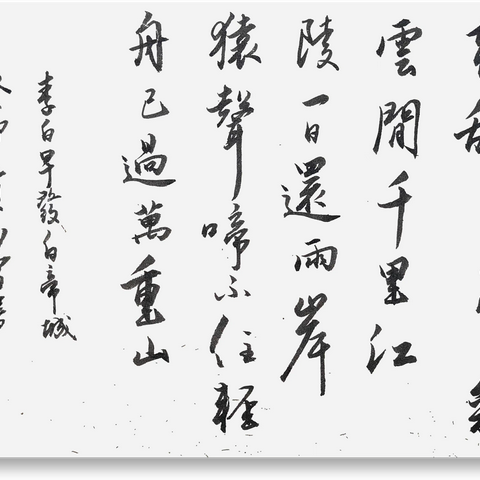 雲間千里江
陵一日還兩岸
猿聲啼不住輕
舟已過萬重山
李白早發白帝城